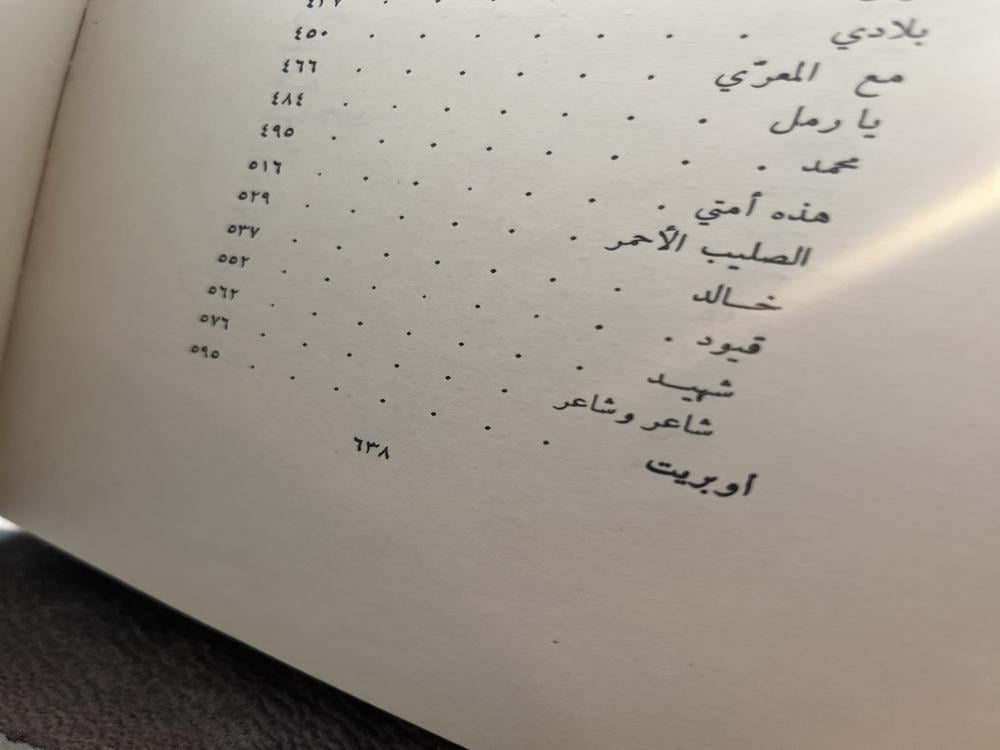 بلادي . . . . . . . ٤٥٠
مع المعرّي . . . . . ٤٦٦
يا رمل . . . . . . ٤٨٤
محمد . . . . . . . ٤٩٥
هذه أمتي . . . . . . ٥١٦
الصليب الأحمر . . . . . ٥٢٩
خـالد . . . . . . ٥٣٧
قيود . . . . . . . ٥٥٢
شهيـد . . . . . . ٥٦٢
شاعر وشاعر . . . . . ٥٧٦
اوبريت . . . . . . . ٥٩٥
٦٣٨